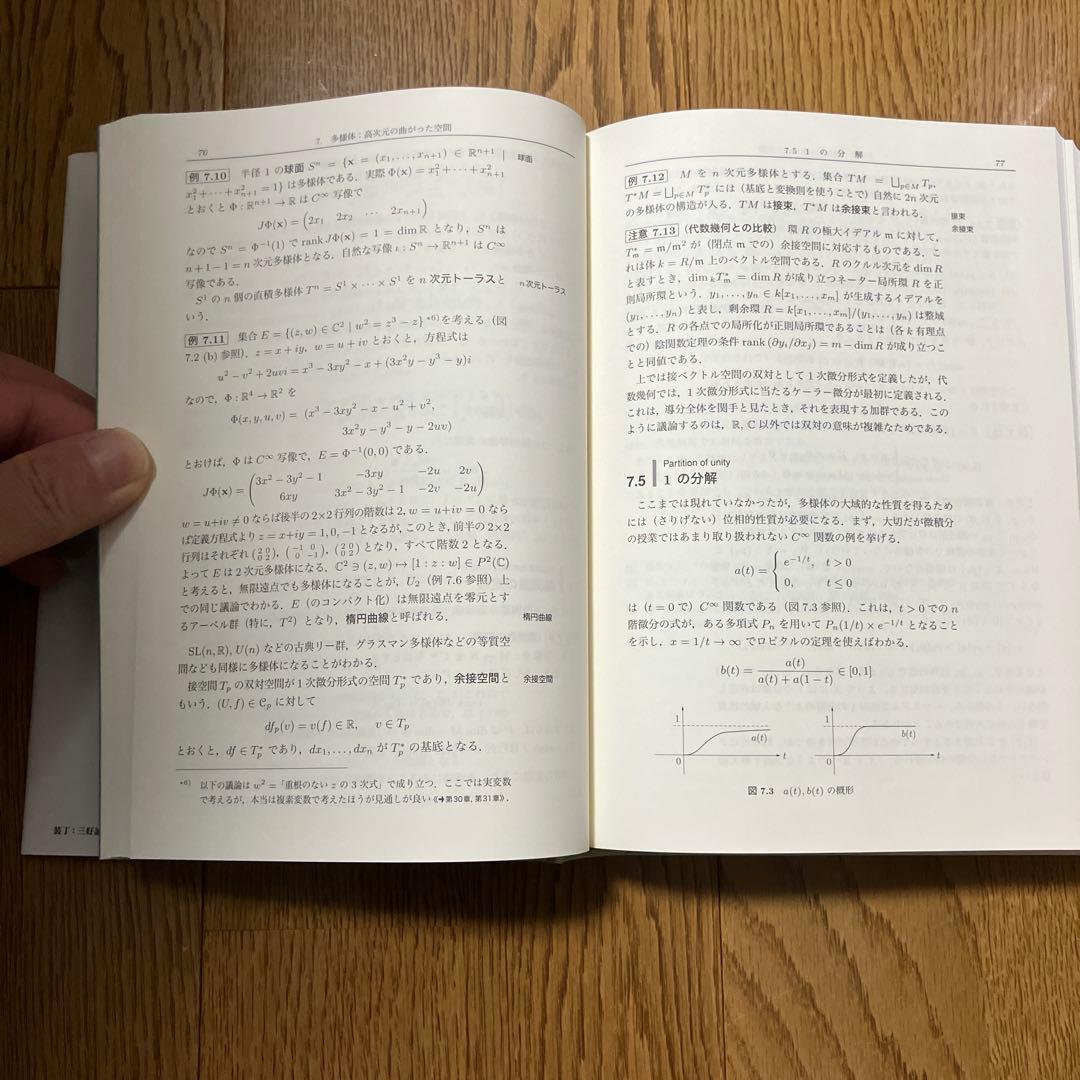 76
7 多様体：高次元の曲がった空間
例 7.10 半径 1 の球面 Sⁿ = {x = (x₁, . . . , xₙ₊₁) ∈ ℝⁿ⁺¹ |
球面
x₁² + ⋯ + xₙ₊₁² = 1} は多様体である．実際 Φ(x) = x₁² + ⋯ + xₙ₊₁²
とおくと Φ : ℝⁿ⁺¹ → ℝ は C^∞ 写像で
JΦ(x) = (2x₁ 2x₂ ⋯ 2xₙ₊₁)
なので Sⁿ = Φ⁻¹(1) で rank JΦ(x) = 1 = dim ℝ となり，Sⁿ は
n + 1 − 1 = n 次元多様体となる．自然な写像 ι : Sⁿ → ℝⁿ⁺¹ は C^∞
写像である．
S¹ の n 個の直積多様体 Tⁿ = S¹ × ⋯ × S¹ を n 次元トーラスと
n 次元トーラス
いう．
例 7.11 集合 E = {(z, w) ∈ ℂ² | w² = z³ − z} *⁶⁾を考える（図
7.2 (b) 参照）．z = x + iy, w = u + iv とおくと，方程式は
u² − v² + 2uvi = x³ − 3xy² − x + (3x²y − y³ − y)i
なので，Φ : ℝ⁴ → ℝ² を
Φ(x, y, u, v) = (x³ − 3xy² − x − u² + v²,
3x²y − y³ − y − 2uv)
とおけば，Φ は C^∞ 写像で，E = Φ⁻¹(0, 0) である．
JΦ(x) = (3x² − 3y² − 1 −3xy −2u 2v
6xy 3x² − 3y² − 1 −2v −2u)
w = u+iv ≠ 0 ならば後半の 2×2 行列の階数は 2, w = u+iv = 0 なら
ば定義方程式より z = x+iy = 1, 0, −1 となるが，このとき，前半の 2×2
行列はそれぞれ (2 0 0 2), (−1 0 0 −1), (2 0 0 2) となり，すべて階数 2 となる．
よって E は 2 次元多様体になる．ℂ² ∋ (z, w) ↦ [1 : z : w] ∈ P²(ℂ)
と考えると，無限遠点でも多様体になることが，U₂（例 7.6 参照）上
での同じ議論でわかる．E（のコンパクト化）は無限遠点を零元とす
るアーベル群（特に，T²）となり，楕円曲線と呼ばれる．
楕円曲線
SL(n, ℝ), U(n) などの古典リー群，グラスマン多様体などの等質空
間なども同様に多様体になることがわかる．
接空間 Tₚ の双対空間が 1 次微分形式の空間 Tₚ* であり，余接空間と
余接空間
もいう．(U, f) ∈ 𝒞ₚ に対して
dfₚ(v) = v(f) ∈ ℝ, v ∈ Tₚ
とおくと，df ∈ Tₚ* であり，dx₁, . . . , dxₙ が Tₚ* の基底となる．
*6) 以下の議論は w² =「重根のない z の 3 次式」で成り立つ．ここでは実変数
で考えるが，本当は複素変数で考えたほうが見通しが良い《➜第30章, 第31章》．
7.5 1 の 分 解
77
例 7.12 M を n 次元多様体とする．集合 TM = ⨆p∈M Tₚ,
T*M = ⨆p∈M Tₚ* には（基底と変換則を使うことで）自然に 2n 次元
の多様体の構造が入る．TM は接束，T*M は余接束と言われる．
接束
余接束
注意 7.13 （代数幾何との比較）環 R の極大イデアル m に対して，
Tₘ* = m/m² が（閉点 m での）余接空間に対応するものである．こ
れは体 k = R/m 上のベクトル空間である．R のクルル次元を dim R
と表すとき，dim ₖTₘ* = dim R が成り立つネーター局所環 R を正
則局所環という．y₁, . . . , yₙ ∈ k[x₁, . . . , xₘ] が生成するイデアルを
(y₁, . . . , yₙ) と表し，剰余環 R = k[x₁, . . . , xₘ]/(y₁, . . . , yₙ) は整域
とする．R の各点での局所化が正則局所環であることは（各 k 有理点
での）陰関数定理の条件 rank (∂yᵢ/∂xⱼ) = m − dim R が成り立つこ
とと同値である．
上では接ベクトル空間の双対として 1 次微分形式を定義したが，代
数幾何では，1 次微分形式に当たるケーラー微分が最初に定義される．
これは，導分全体を関手と見たとき，それを表現する加群である．この
ように議論するのは，ℝ, ℂ 以外では双対の意味が複雑なためである．
Partition of unity
7.5 1 の分解
ここまでは現れていなかったが，多様体の大域的な性質を得るため
には（さりげない）位相的性質が必要になる．まず，大切だが微積分
の授業ではあまり取り扱われない C^∞ 関数の例を挙げる．
a(t) = { e^(−1/t), t > 0
0, t ≤ 0
は（t = 0 で）C^∞ 関数である（図 7.3 参照）．これは，t > 0 での n
階微分の式が，ある多項式 Pₙ を用いて Pₙ(1/t) × e^(−1/t) となること
を示し，x = 1/t → ∞ でロピタルの定理を使えばわかる．
b(t) = a(t) / (a(t) + a(1 − t)) ∈ [0, 1]
1
a(t)
0
t
1
b(t)
0
t
図 7.3 a(t), b(t) の概形